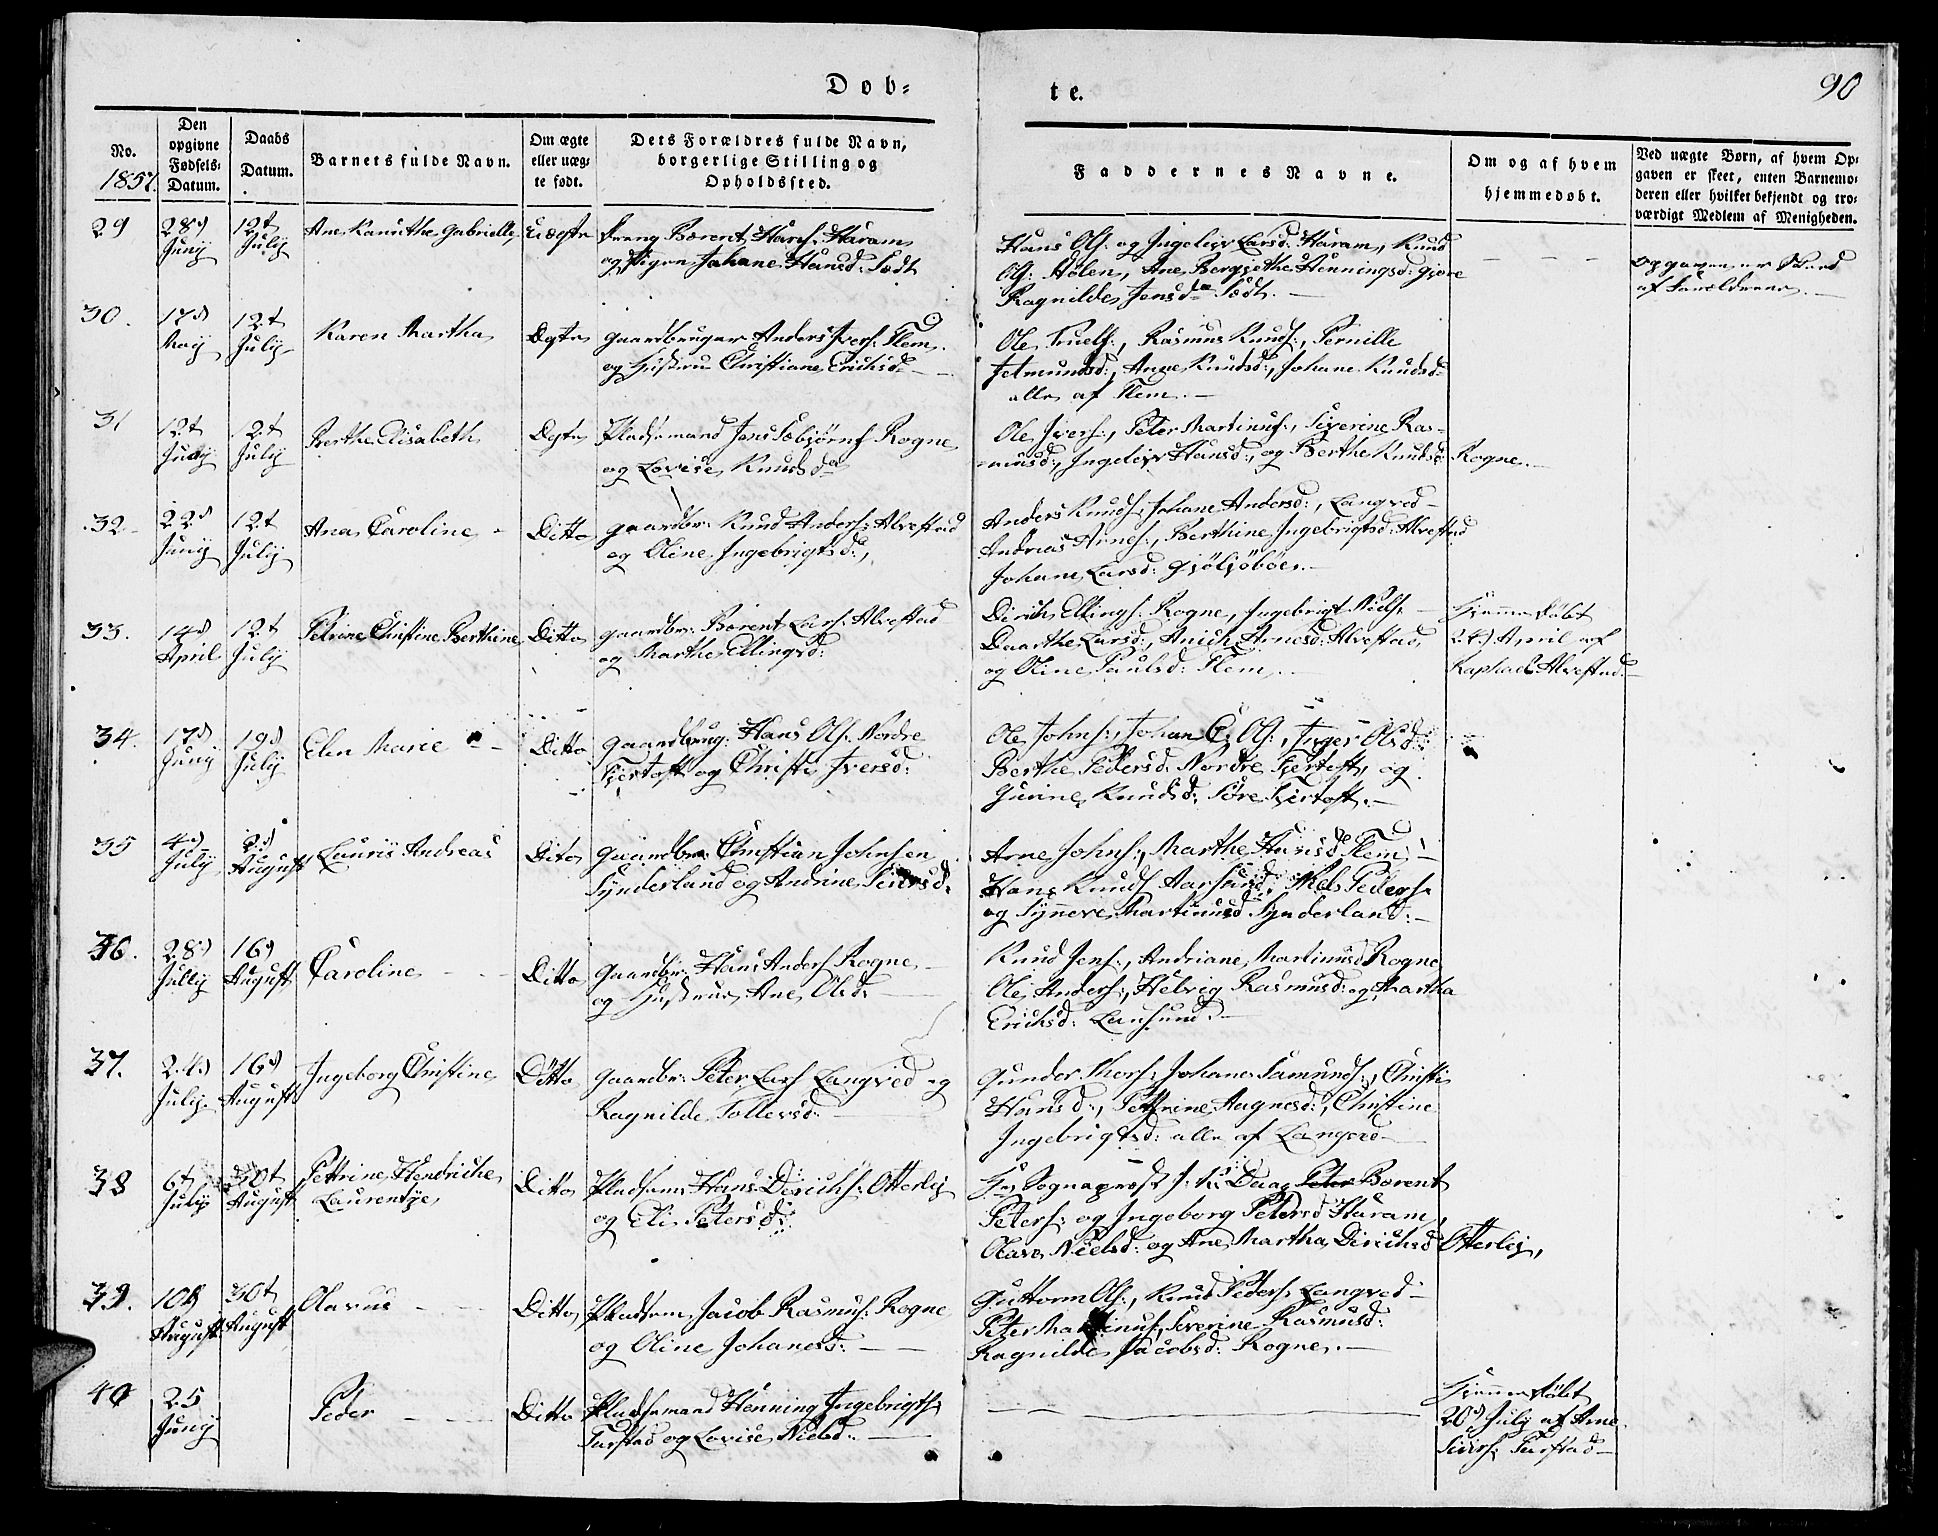 Døb-
te.
90
No.
1857.
Den
opgivne
Fødsels-
Datum.
Daabs
Datum.
Barnets fulde Navn.
Om ægte
eller uæg-
te født.
Dets Forældres fulde Navn,
borgerlige Stilling og
Opholdssted.
Faddernes Navne.
Om og af hvem
hjemmedøbt.
Ved uægte Børn, af hvem Op-
gaven er skeet, enten Barnemo-
deren eller hvilket bekjendt og tro-
værdigt Medlem af Menigheden.
29
28d
Junij
12t
Julij
Ane Kanuthe Gabrielle
Uægte
Dreng Bærent Hans: Haram
og Pigen Johane Hansd: Sædt
Hans Ols: og Ingelivr Larsd: Haram, Knud
Ols: Hølen, Ane Bergjethe Henningsd: Gjøre
Ragnilde Jensd: Sædt.
Opgaven er skeed
af Forældrene.
30.
17d
Maij
12t
Julij
Karen Martha
Ægte
Gaardbruger Anders Ivers: Flem
og Hustrue Christiane Erichsd:
Ole Truels:, Rasmus Knuds:, Pernille
Jetmundsd:, Anne Knudsd:, Johane Knudsd:
alle af Flem.
31
12t
12t
Julij
Berthe Elisabeth
Ægte
Pladsemand Jens Sæbjørns Rogne
og Lovise Knudsd:
Ole Ivers:, Peter Martinus:, Siverine Ras-
musd:, Ingelivr Hansd:, og Berthe Knudsd: Rogne.
32.
22d
Junij
12t
Julij
Ana Caroline
Ditto
Gaardbr: Knud Anders: Alvestad
og Oline Ingebrigtsd:,
Anders Knuds: Johane Andersd:, Langved
Andreas Arnes:, Berthine Ingebrigtsd: Alvestad
Johane Larsd:
33.
14d
April
12t
Julij
Petrine Christine Berthine
Ditto
Gaardbr: Bærent Lars: Alvestad
og Marthe Ellingsd:
Dirich Ellings: Rogne, Ingebrigt Niels:
Daarthe Larsd:, Anich Arnesd: Alvestad,
og Oline Paulsd: Flem.
Hjemmedøbt
24d April af
Raphael Alvestad.
34.
17d
Junij
19d
Julij
Elen Marie
Ditto
Gaardbrug: Hans Ols: Nordre
Fjertoft og Christi Iversd:
Ole Johns:, Johan C. Ols:, Inger Olsd:
Berthe Pedersd: Nordre Fjertoft, og
Gurine Knudsd: Søre Fjertoft.
35
4d
Julij
2d
August
Laurits Andreas
Ditto
Gaardbr: Christian Johnsen
Synderland og Andrine Siversd:
Arne Johns:, Marthe Hansd: Flem,
Hans Knuds: Niels Peders:
og Synneve Martinusd: Synderland:
36.
28d
Julij
16d
August
Caroline
Ditto
Gaardbr: Hans Anders: Rogne
og Hustrue Ane Olsd:
Knud Jens:, Andriane Martinusd: Rogne
Ole Anders:, Helvig Rasmusd: og Martha
Erichsd: Longsund.
37.
24d
Julij
16d
August
Ingeborg Christine
Ditto
Gaardbr: Peter Lars: Langved og
Ragnilde Tollevsd:
Gunder Thors: Johane Samunds:, Christi
Hansd:, Petrine Aagnesd:, Christine
Ingebrigtsd: alle af Langved
38
6t
Julij
30t
August
Petrine Hendriche
Laurentze
Ditto
Pladsem: Hans Dirichs: Otterlej
og Eli Petersd:
Hr Sognepræst J. K. Daae Peter Bærent
Peters: og Ingeborg Petersd: Haram,
Olave Nielsd: og Ane Martha Dirichsd: Otterlej,
39.
10d
August
30t
August
Olavus
Ditto
Pladsem: Jacob Rasmus: Rogne
og Oline Johanesd:
Guttorm Ols:, Knud Peders: Langved
Peter Martinus:, Siverine Rasmusd:
Ragnilde Jacobsd: Rogne.
40
25
Junij
Peder
Ditto
Pladsemand Henning Ingebrigts:
Farstad og Lovise Nielsd:
Hjemmedøbt
20d Julij af Arne
Sivers: Farstad